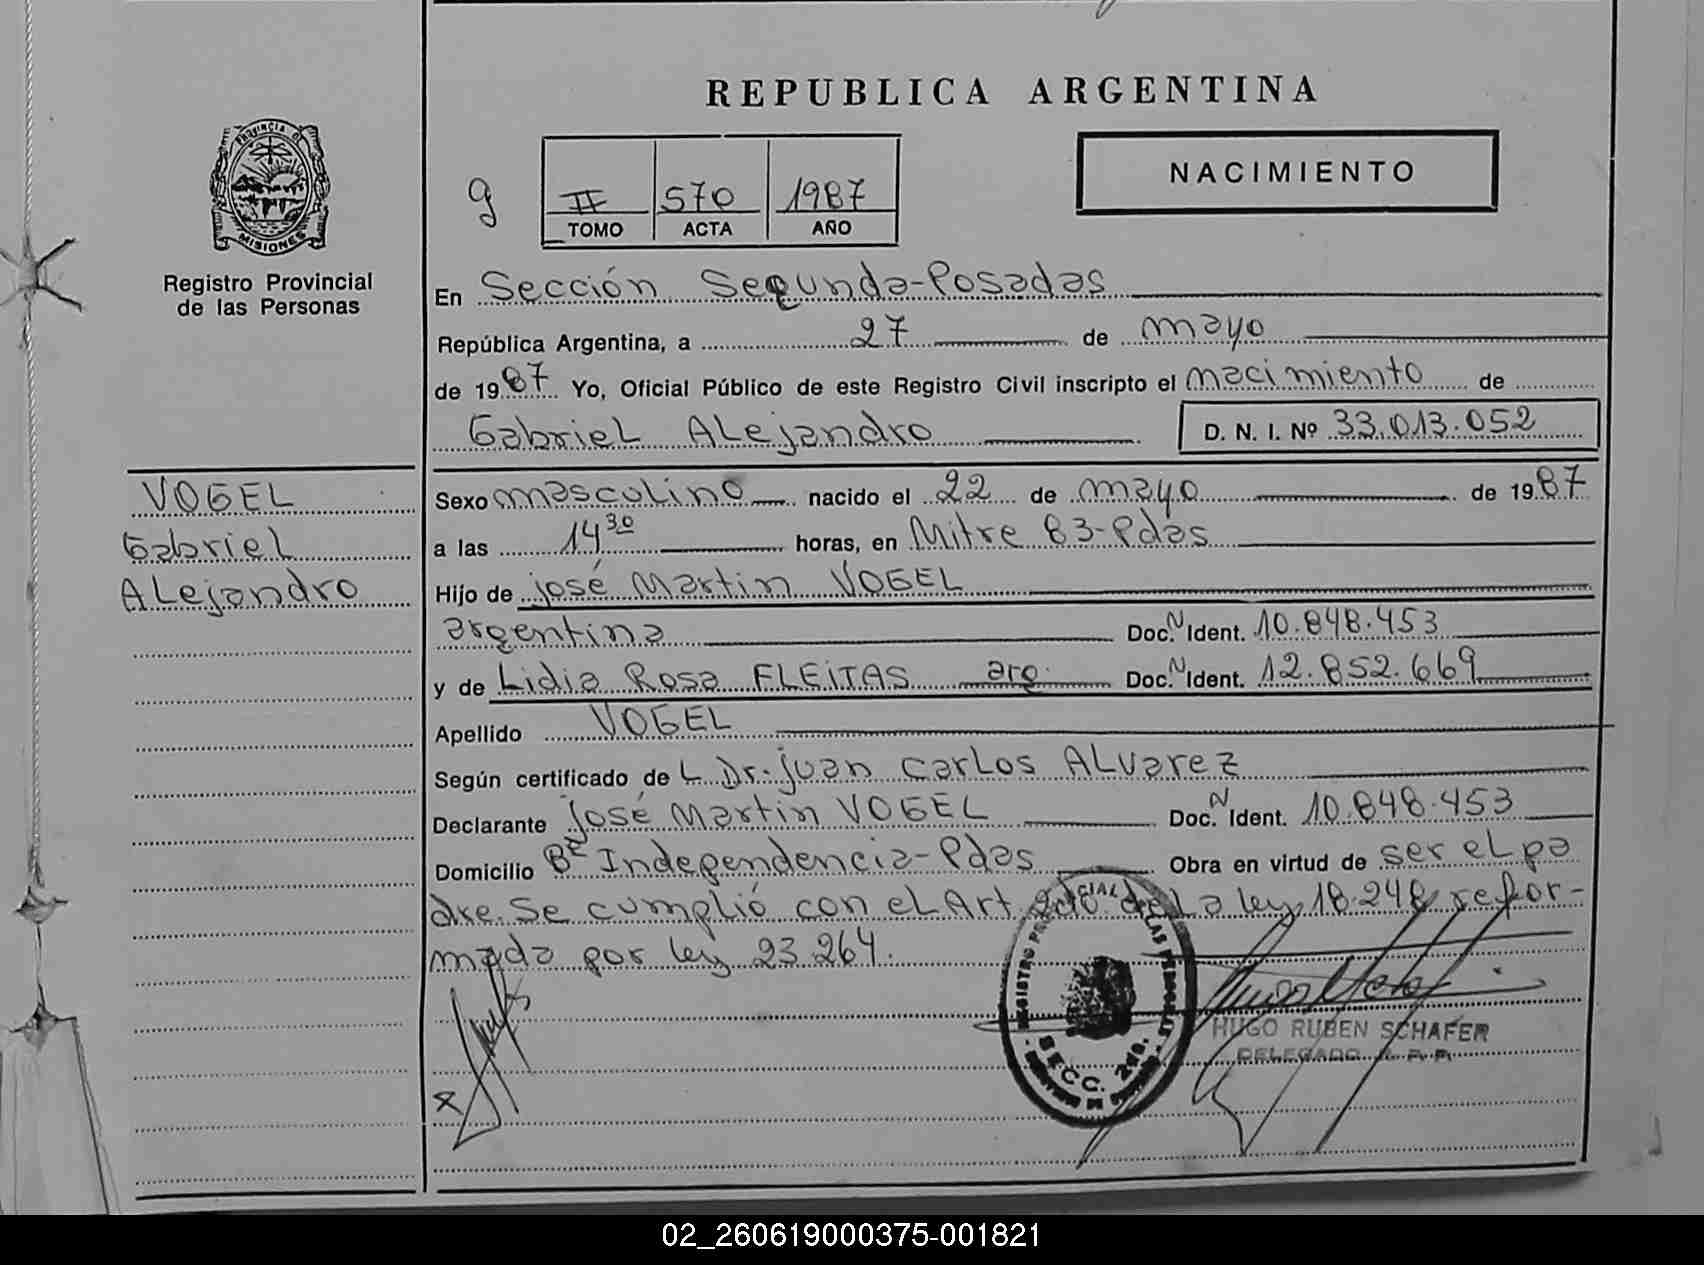 REPUBLICA ARGENTINA
PROVINCIA DE
MISIONES
Registro Provincial
de las Personas
g
II 570 1987
TOMO ACTA AÑO
NACIMIENTO
En Sección Segunda-Posadas
República Argentina, a 27 de mayo
de 1987 Yo, Oficial Público de este Registro Civil inscripto el nacimiento de
Gabriel Alejandro D. N. I. Nº 33.013.052
VOGEL
Gabriel
Alejandro
Sexo masculino nacido el 22 de mayo de 1987
a las 14 30 horas, en Mitre 83-Pdas
Hijo de josé Martin VOGEL
argentina Doc. N Ident. 10.848.453
y de Lidia Rosa FLEITAS arg. Doc. N Ident. 12.852.669
Apellido VOGEL
Según certificado de L Dr. juan Carlos ALvarez
Declarante José Martin VOGEL Doc. N Ident. 10.848.453
Domicilio Bº Independencia-Pdas Obra en virtud de ser el pa
dre. Se cumplió con el Art. 2do. de la ley 18.248 refor-
mada por ley 23.264.
SECC. 2da.
HUGO RUBEN SCHAFER
DELEGADO R. P. P.
02_260619000375-001821